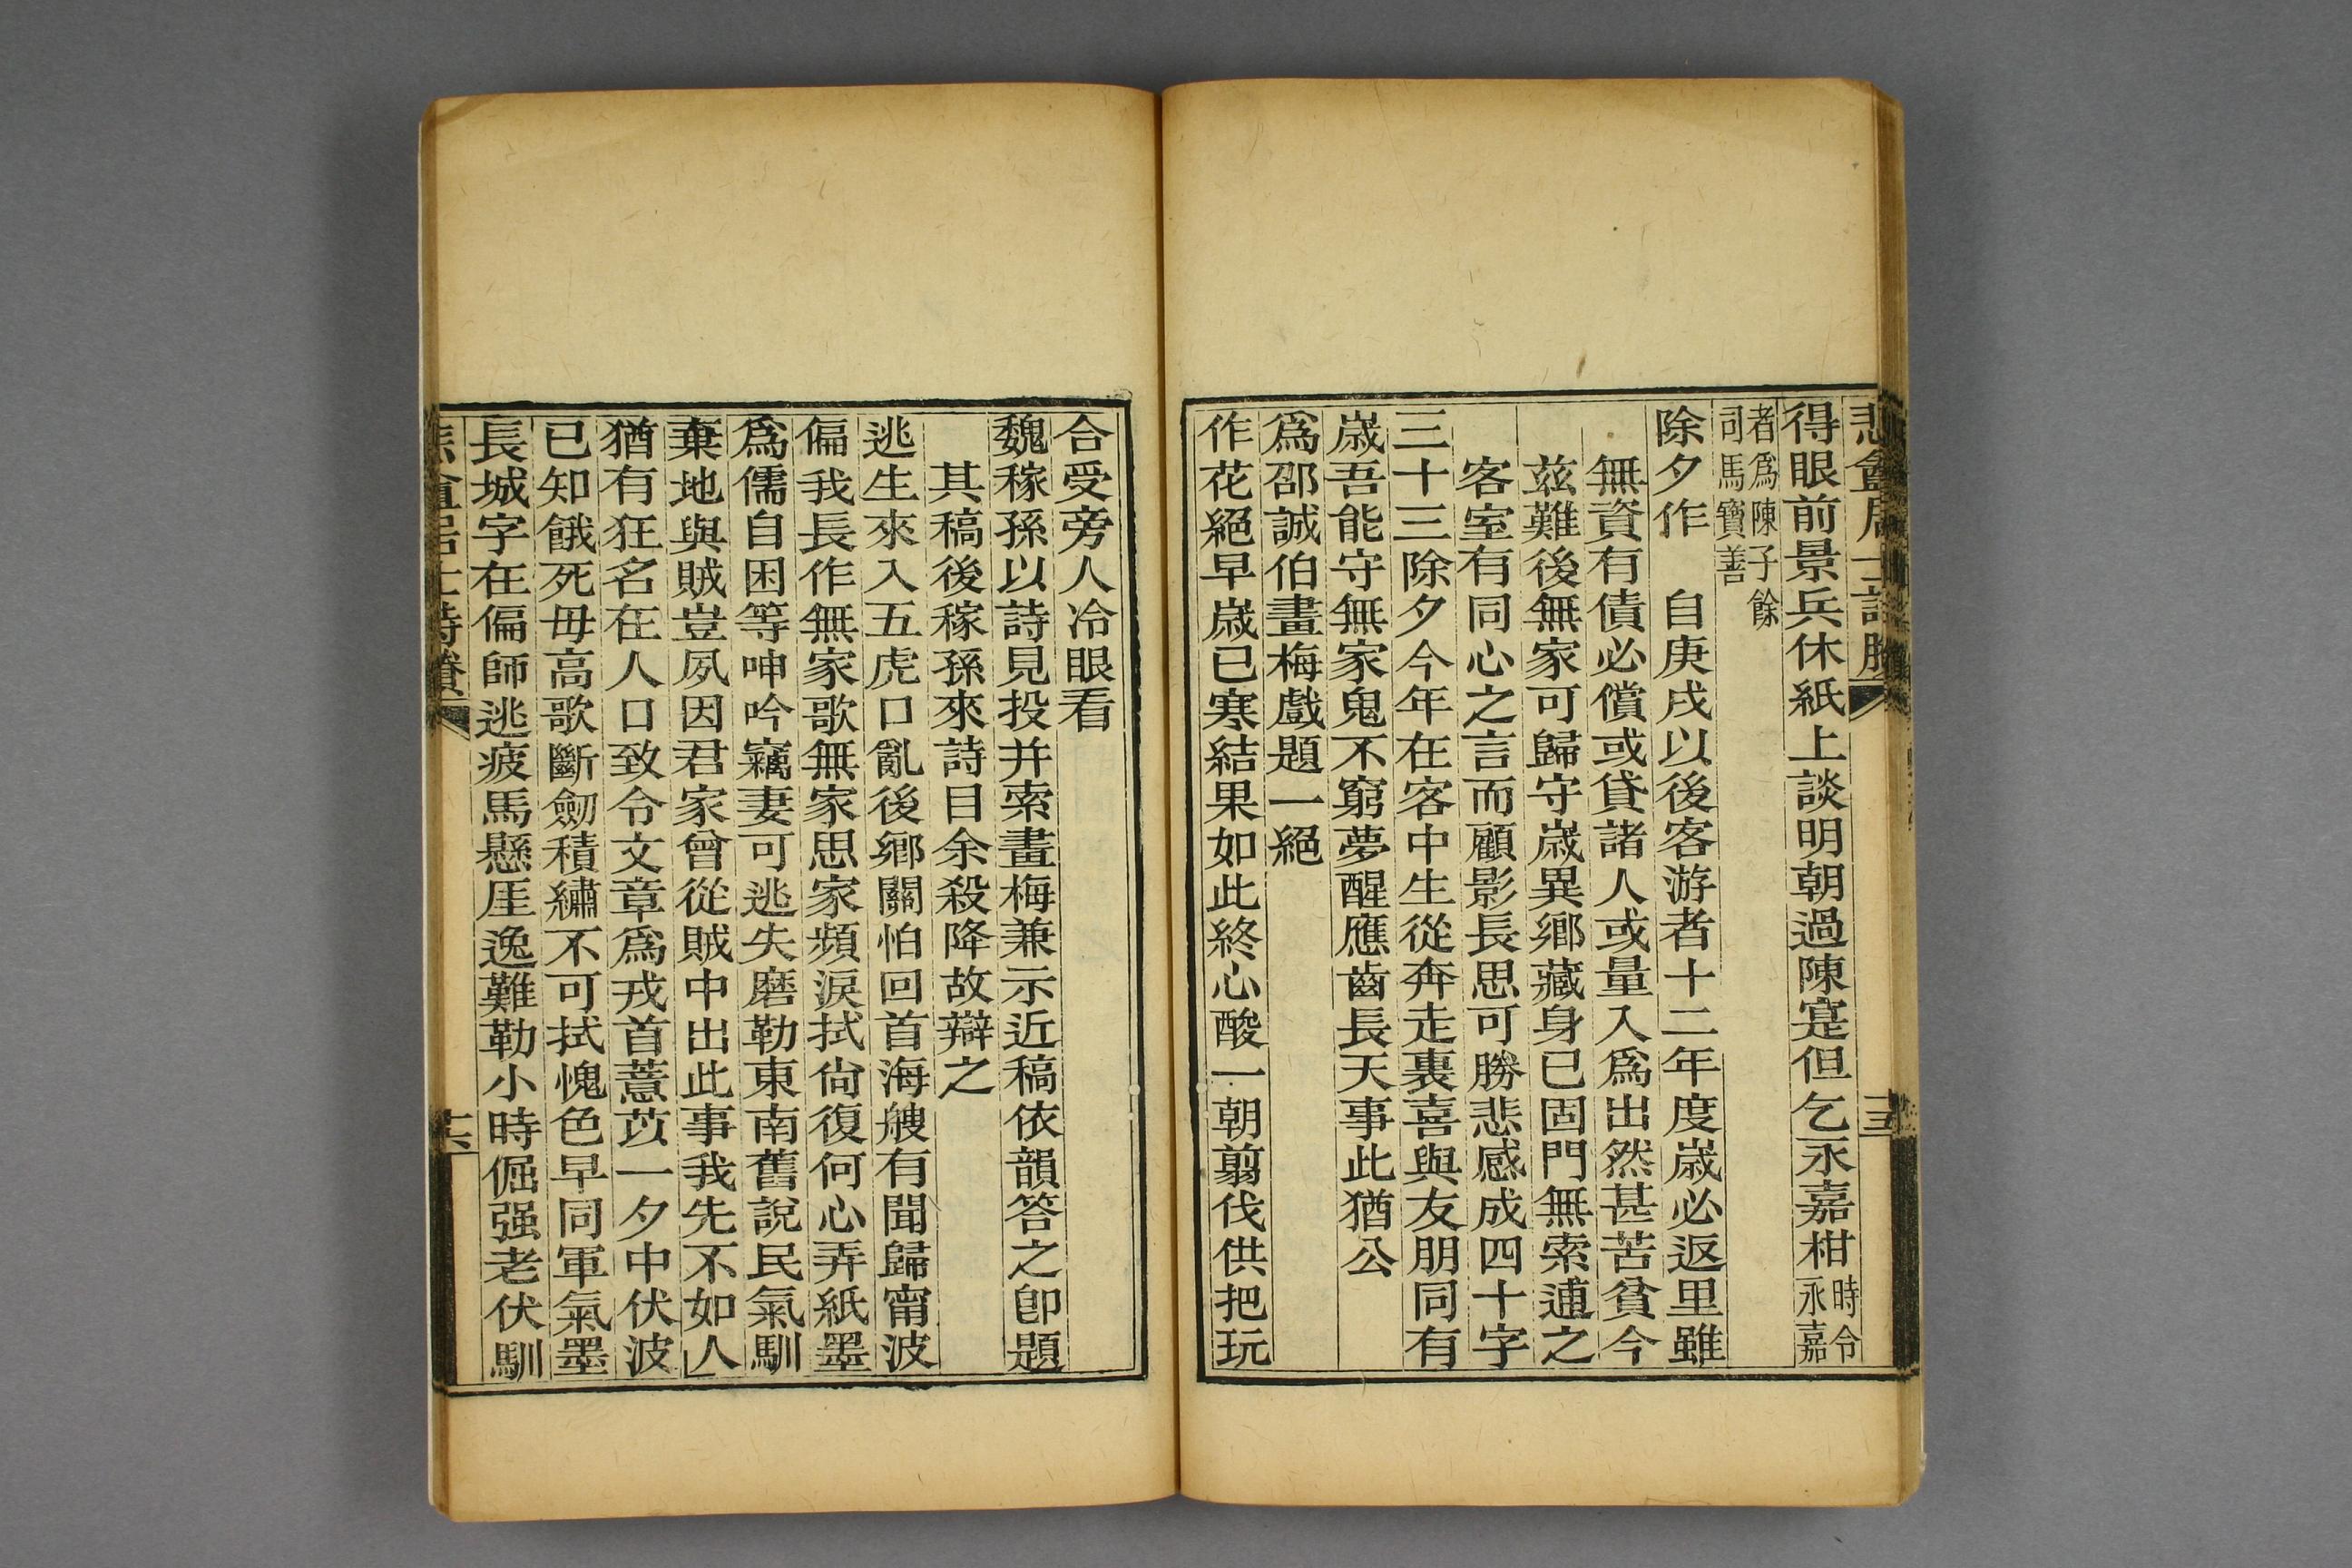 悲盦居士詩賸
十五
得眼前景兵休紙上談明朝過陳寔但乞永嘉柑時令永嘉
者爲陳子餘司馬寶善
除夕作　自庚戌以後客游者十二年度歲必返里雖
無資有債必償或貸諸人或量入爲出然甚苦貧今
兹難後無家可歸守歲異鄉藏身已固門無索逋之
客室有同心之言而顧影長思可勝悲感成四十字
三十三除夕今年在客中生從奔走裏喜與友朋同有
歲吾能守無家鬼不窮夢醒應齒長天事此猶公
爲邵誠伯畫梅戲題一絕
作花絕早歲已寒結果如此終心酸一朝翦伐供把玩
合受旁人冷眼看
魏稼孫以詩見投并索畫梅兼示近稿依韻答之卽題
其稿後稼孫來詩目余殺降故辯之
逃生來入五虎口亂後鄉關怕回首海艘有聞歸甯波
偏我長作無家歌無家思家頻淚拭尙復何心弄紙墨
爲儒自困等呻吟竊妻可逃失磨勒東南舊說民氣馴
棄地與賊豈夙因君家曾從賊中出此事我先不如人
猶有狂名在人口致令文章爲戎首薏苡一夕中伏波
已知餓死毋高歌斷劒積繡不可拭愧色早同軍氣墨
長城字在偏師逃疲馬懸厓逸難勒小時倔强老伏馴
悲盦居士詩賸
十六